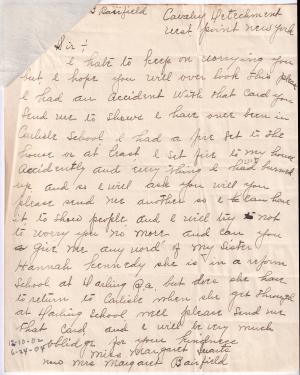 J Barfield Cavalry Detechment
West Point New York
Sir :-
I hate to keep on worrying you
but I hope you will over look this please
I had an accident with that card you
send me to shows I have once been in
Carlisle School I had a fire set to the
house or at least I set fire to my house
Accidently and every thing I had burned
up and so I will ask you will you
please send me another so I can have
it to show people and I will try not
to worry you no more and can you
give me any word of my Sister
Hannah Kennedy she is in a reform
School at Pa. but does she have
to return to Carlisle when she get through
at School well please Send me
that Card and I will be very much
oblidge for your kindness
12-10-02 Miss Margaret
6-24-04 now Mrs Margaret Barfield